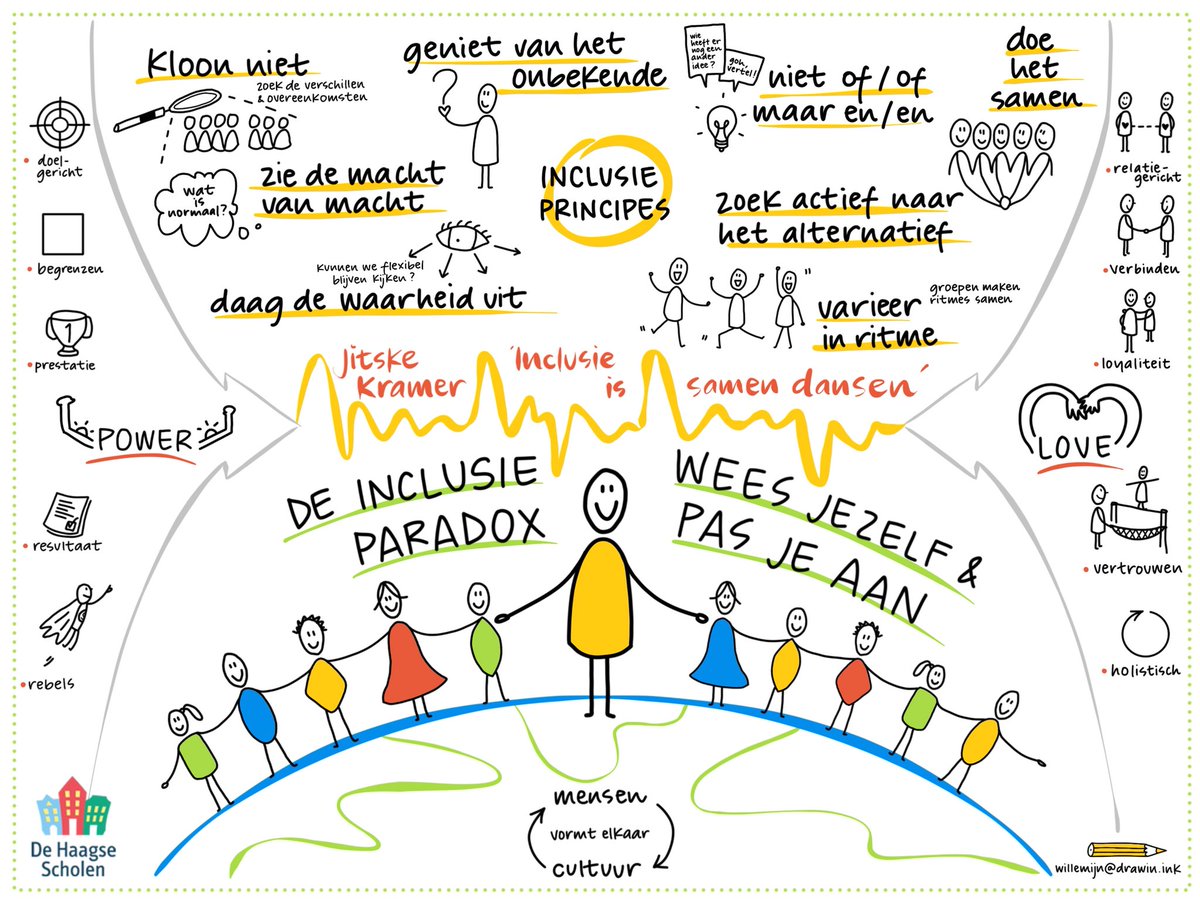 Kloon niet
zoek de verschillen
& overeenkomsten
geniet van het
onbekende
wie
heeft er
nog een
ander
idee?
goh,
vertel!
niet of/of
maar en/en
doe
het
samen
wat
is
normaal?
zie de macht
van macht
INCLUSIE
PRINCIPES
zoek actief naar
het alternatief
kunnen we flexibel
blijven kijken?
daag de waarheid uit
varieer
in ritme
groepen maken
ritmes samen
doel-
gericht
begrenzen
1
prestatie
POWER
resultaat
rebels
relatie-
gericht
verbinden
loyaliteit
LOVE
vertrouwen
holistisch
Jitske
Kramer
'Inclusie
is
samen dansen'
DE INCLUSIE
PARADOX
WEES JEZELF &
PAS JE AAN
mensen
vormt elkaar
cultuur
De Haagse
Scholen
willemijn@drawin.ink